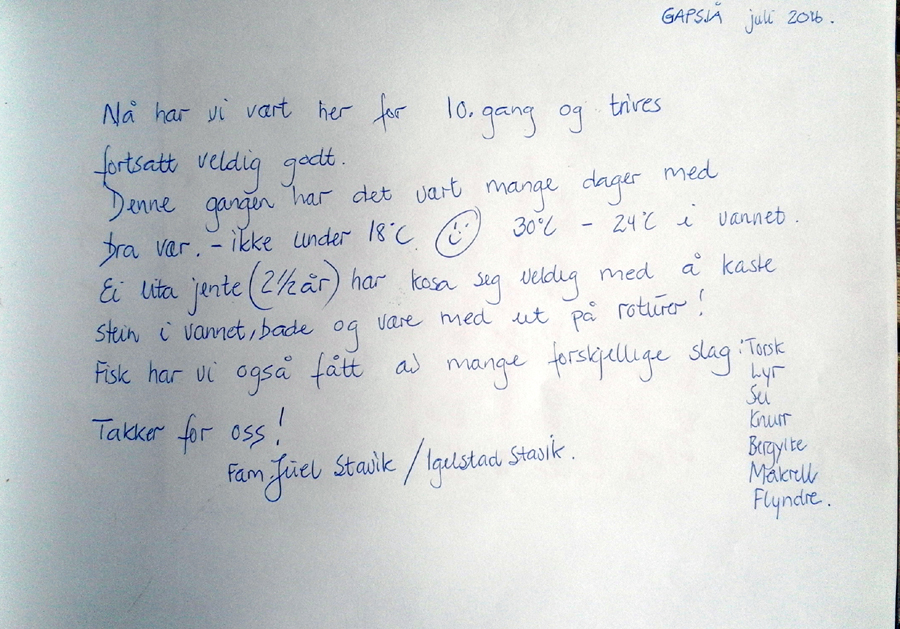 GAPSJÅ juli 2016.
Nå har vi vært her for 10. gang og trives
fortsatt veldig godt.
Denne gangen har det vært mange dager med
bra vær. - ikke under 18°C. 30°C - 24°C i vannet.
Ei lita jente (2 1/2 år) har kosa seg veldig med å kaste
stein i vannet, bade og være med ut på roturer!
Fisk har vi også fått av mange forskjellige slag: Torsk
Lyr
Sei
Knurr
Bergylte
Makrell
Flyndre.
Takker for oss!
Fam. Juel Stavik / Igelstad Stavik.